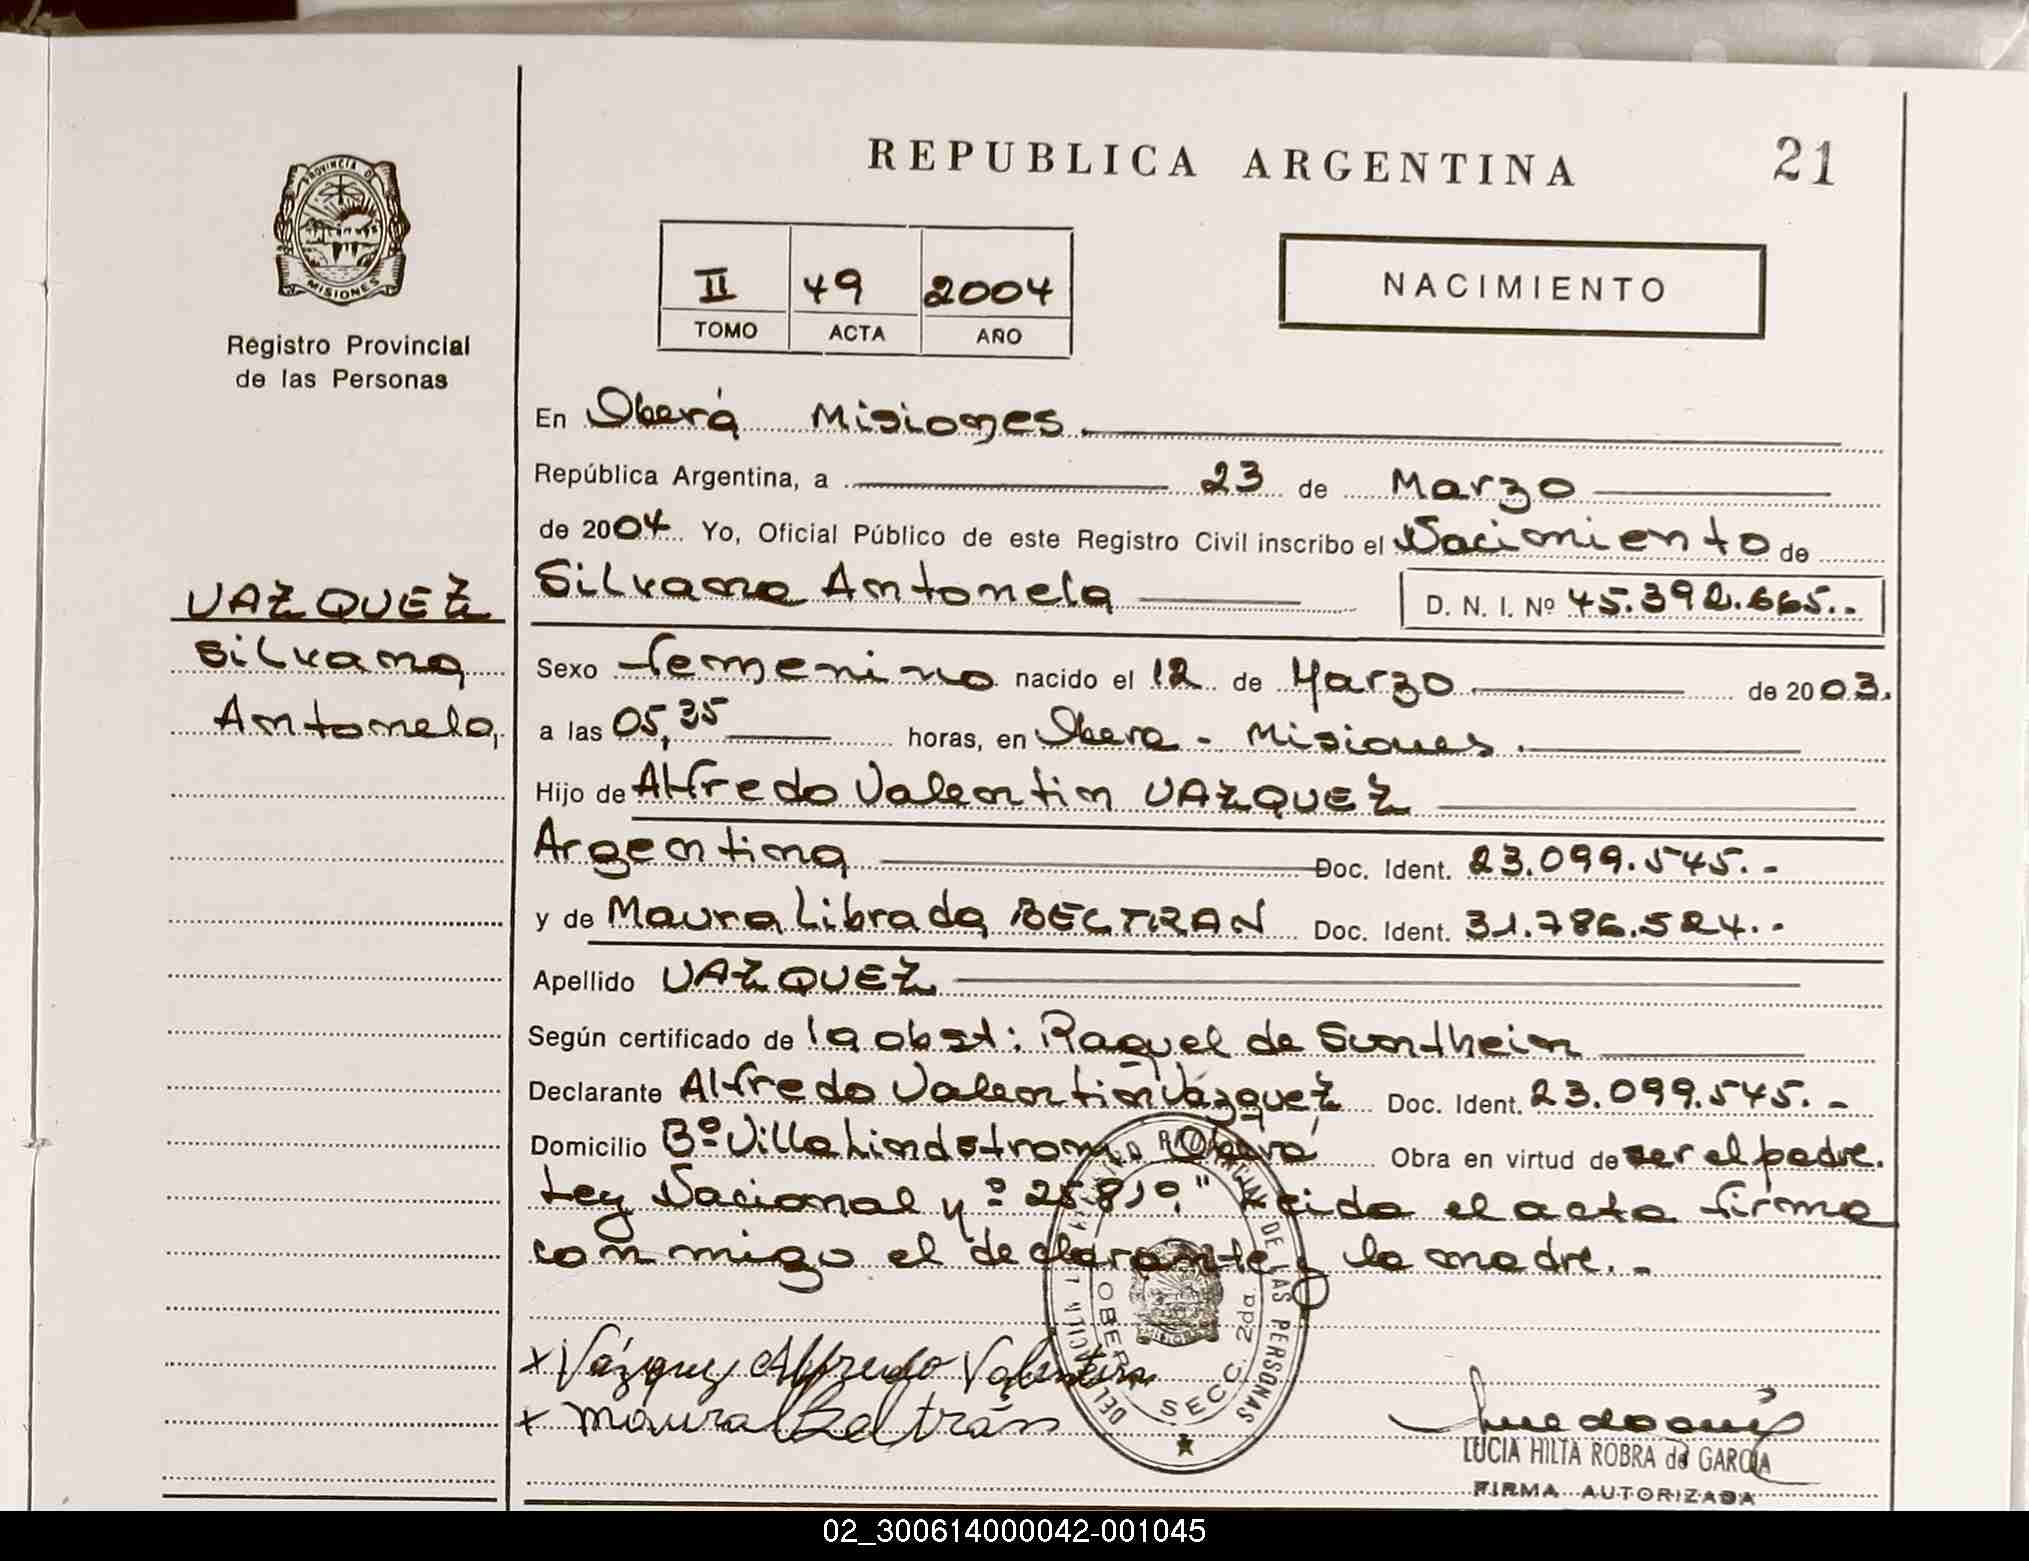 REPUBLICA ARGENTINA
21
PROVINCIA DE
MISIONES
Registro Provincial
de las Personas
II 49 2004
TOMO ACTA AÑO
NACIMIENTO
En Oberá Misiones
República Argentina, a 23 de Marzo
de 2004 Yo, Oficial Público de este Registro Civil inscribo el Nacimiento de
Silvana Antonela D. N. I. Nº 45.392.665.-
VAZQUEZ
Silvana
Antonela
Sexo femenino nacido el 12 de Marzo de 2003.
a las 05,35 horas, en Obera - Misiones.
Hijo de Alfredo Valentin VAZQUEZ
Argentina Doc. Ident. 23.099.545.-
y de Maura Librada BELTRAN Doc. Ident. 31.786.524.-
Apellido VAZQUEZ
Según certificado de la obst: Raquel de Suntheim
Declarante Alfredo Valentin Vázquez Doc. Ident. 23.099.545.-
Domicilio Bº Villa Lindstrom, Oberá Obra en virtud de ser el padre.
Ley Nacional nº 25.819." Leida el acta firma
conmigo el declarante y la madre.-
x Vázquez Alfredo Valentin
x Maura L Beltrán
DE LAS PERSONAS
OBERA
SECC. 2da.
LUCIA HILTA ROBRA de GARCIA
FIRMA AUTORIZADA
02_300614000042-001045